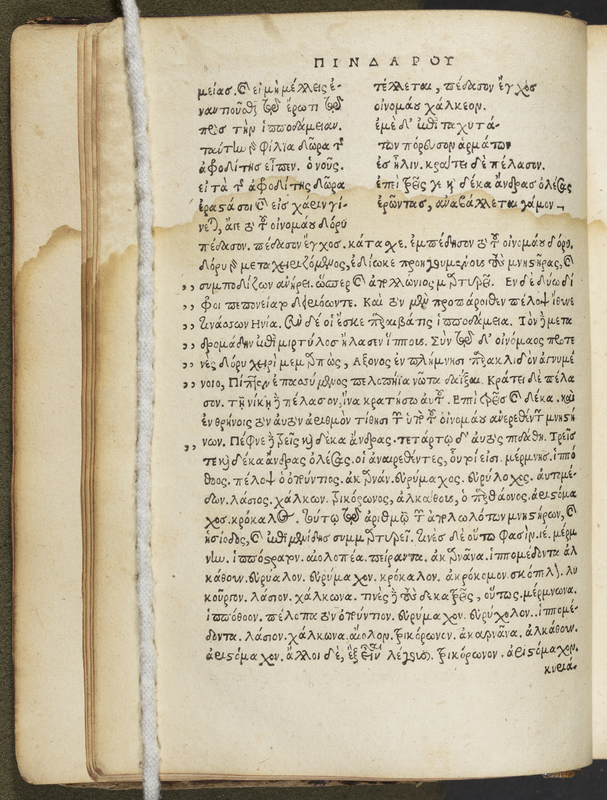 ΠΙΝΔΑΡΟΥ
μείας. καὶ εἰ μὴ μέλλεις ἐ-
ναντιοῦσθαι τῷ ἔρωτι τῷ
πρὸς τὴν ἱπποδάμειαν.
ταύτην φίλια δῶρα τῆς
ἀφροδίτης εἶπεν. ὁ νοῦς.
εἰ τὰ τῆς ἀφροδίτης δῶρα
ἐράσμια καὶ εἰς χάριν γί-
νεται, ἄγε δὴ τοῦ οἰνομάου δόρυ
τέλλεται, πέδασον ἔγχος
οἰνομάου χάλκεον.
ἐμὲ δ' ἐπὶ ταχυτά-
των πόρευσον ἁρμάτων
ἐς ἦλιν. κράτει δὲ πέλασον.
ἐπεὶ τρεῖς γε καὶ δέκα ἄνδρας ὀλέσας
ἐρῶντας, ἀναβάλλεται γάμον
πέδασον. πέδασον ἔγχος. κάταχε. ἐμπόδισον τὸ οἰνομάου δόρυ.
δόρυ μεταχειριζόμενος, ἐδίωκε τοὺς μνηστῆρας, καὶ
συμποδίζων ἀνῄρει. ὥσπερ καὶ ἀπολλώνιος μαρτυρεῖ. Ἐν δὲ δύω δί
φροι πεπονείατο δηριόωντε. Καὶ τὸν μὲν προπάροιθε πέλοψ ἴθυνε
τινάσσων Ἡνία. σὺν δέ οἱ ἔσκε παραιβάτις ἱπποδάμεια. Τὸν δὲ μετα
δρομάδην ἐπὶ μιρτύλος ἤλασεν ἵππους. Σὺν τῷ δ' οἰνόμαος προτε
νὲς δόρυ χειρὶ μεμαρπώς, Ἄξονος ἐν πλήμνῃσι παρακλιδὸν ἀγνυμέ
νοιο, Πίπτεν ἐπεσσύμενος πελοπήϊα νῶτα δαΐξαι. Κράτει δὲ πέλα
σον. τῇ νίκῃ πέλασον, ἵνα κρατήσω αὐτοῦ. Ἐπὶ τρεῖς καὶ δέκα. καὶ
ἐν θρήνοις τὸν αὐτὸν ἀριθμὸν τίθησι τῶν ὑπὸ τοῦ οἰνομάου ἀναιρεθέντων μνηστή
νων. Πέφνε δὲ τρεῖς καὶ δέκα ἄνδρας. τετάρτῳ δ' αὐτὸς πεδάθη. Τρεῖς
τε καὶ δέκα ἄνδρας ὀλέσας. οἱ ἀναιρεθέντες, οὗτοί εἰσι. μέρμνης. ἱππό
θοος. πέλοψ ὁ ὀπούντιος. ἀκαρνάν. εὐρύμαχος. εὐρύλοχος. αὐτομέ-
δων. λάσιος. χάλκων. τρικόρωνος, ἀλκάθοος, ὁ πορθάονος. ἀριστόμα
χος. κρόκαλος. τούτῳ τῷ ἀριθμῷ τῶν ἀπολωλότων μνηστήρων, καὶ
ἡσίοδος, καὶ ἐπιμενίδης συμμαρτυρεῖ. τινὲς δὲ οὕτω φασίν. ιε. μέρμ
νην. ἱππόστρατον. αἰολοπέα. πείραντα. ἀκαρνᾶνα. ἱππομέδοντα ἀλ
κάθουν. εὐρύαλον. εὐρύμαχον. κρόκαλον. ἀκρόκομον. σκόπελον. λυ
κοῦργον. λάσιον. χάλκωνα. τινὲς δὲ τοὺς δεκατρεῖς, οὕτως. μέρμνωνα.
ἱππόθοον. πέλοπα τὸν ὀπούντιον. εὐρύμαχον. εὐρύχολον.. ἱππομέ-
δοντα. λάσιον. χάλκωνα. αἴολον. τρικόρωνον. ἀκαρνᾶνα. ἀλκάθουν.
ἀριστόμαχον. ἄλλοι δὲ, ἑξῆς λέγουσι. τρικόρωνον. ἀριστόμαχον.
κυδιά-